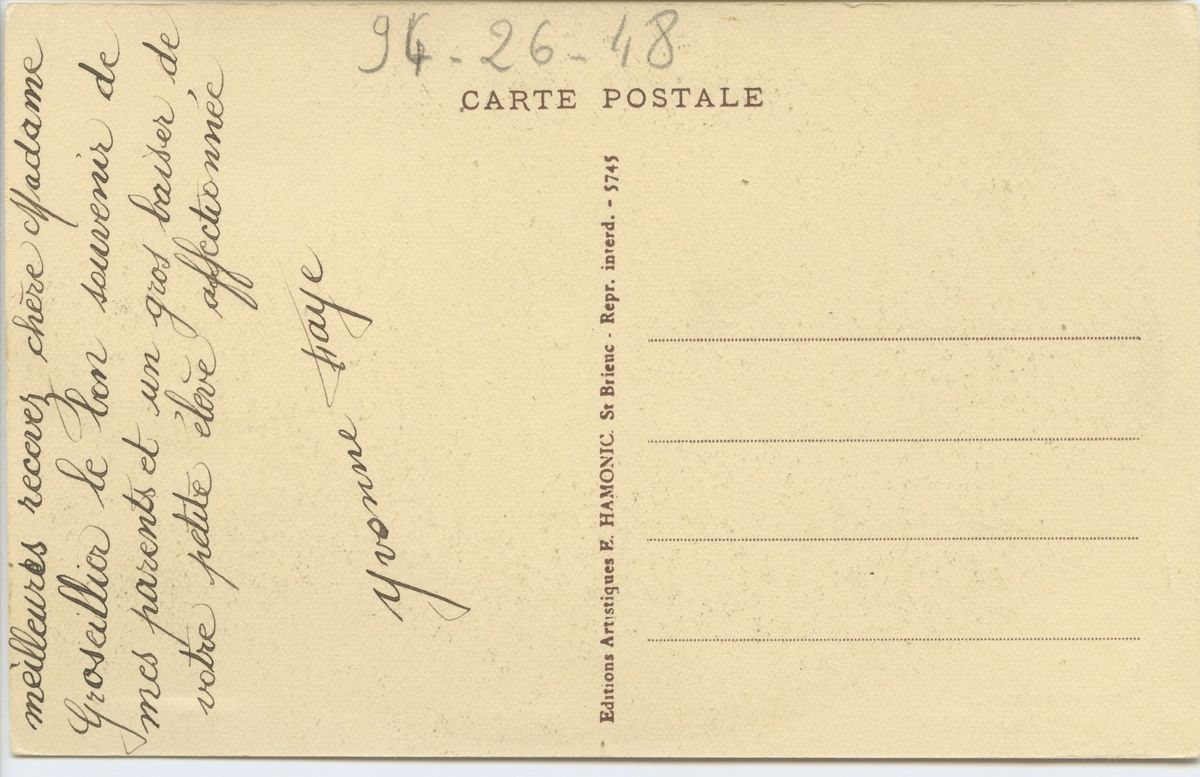 94-26-48
CARTE POSTALE
meilleures recevez chère Madame
Groseillier le bon souvenir de
mes parents et un gros baiser de
votre petite élève affectionnée
Yvonne Haye
Editions Artistiques E. HAMONIC. St Brieuc - Repr. interd. - 5745